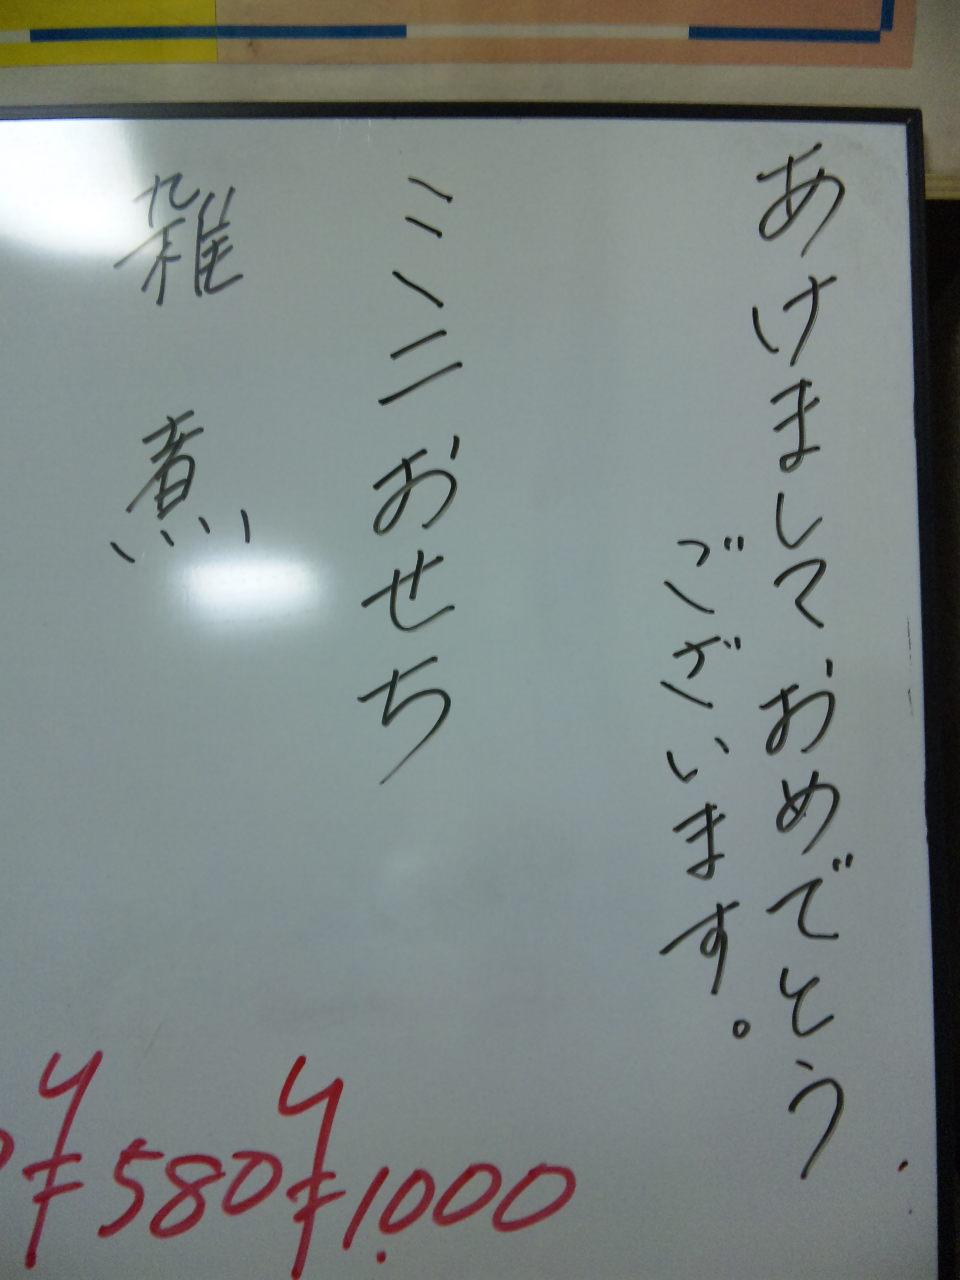 あけまして おめでとう
ございます。
ミニおせち
¥1.000
雑煮
¥580